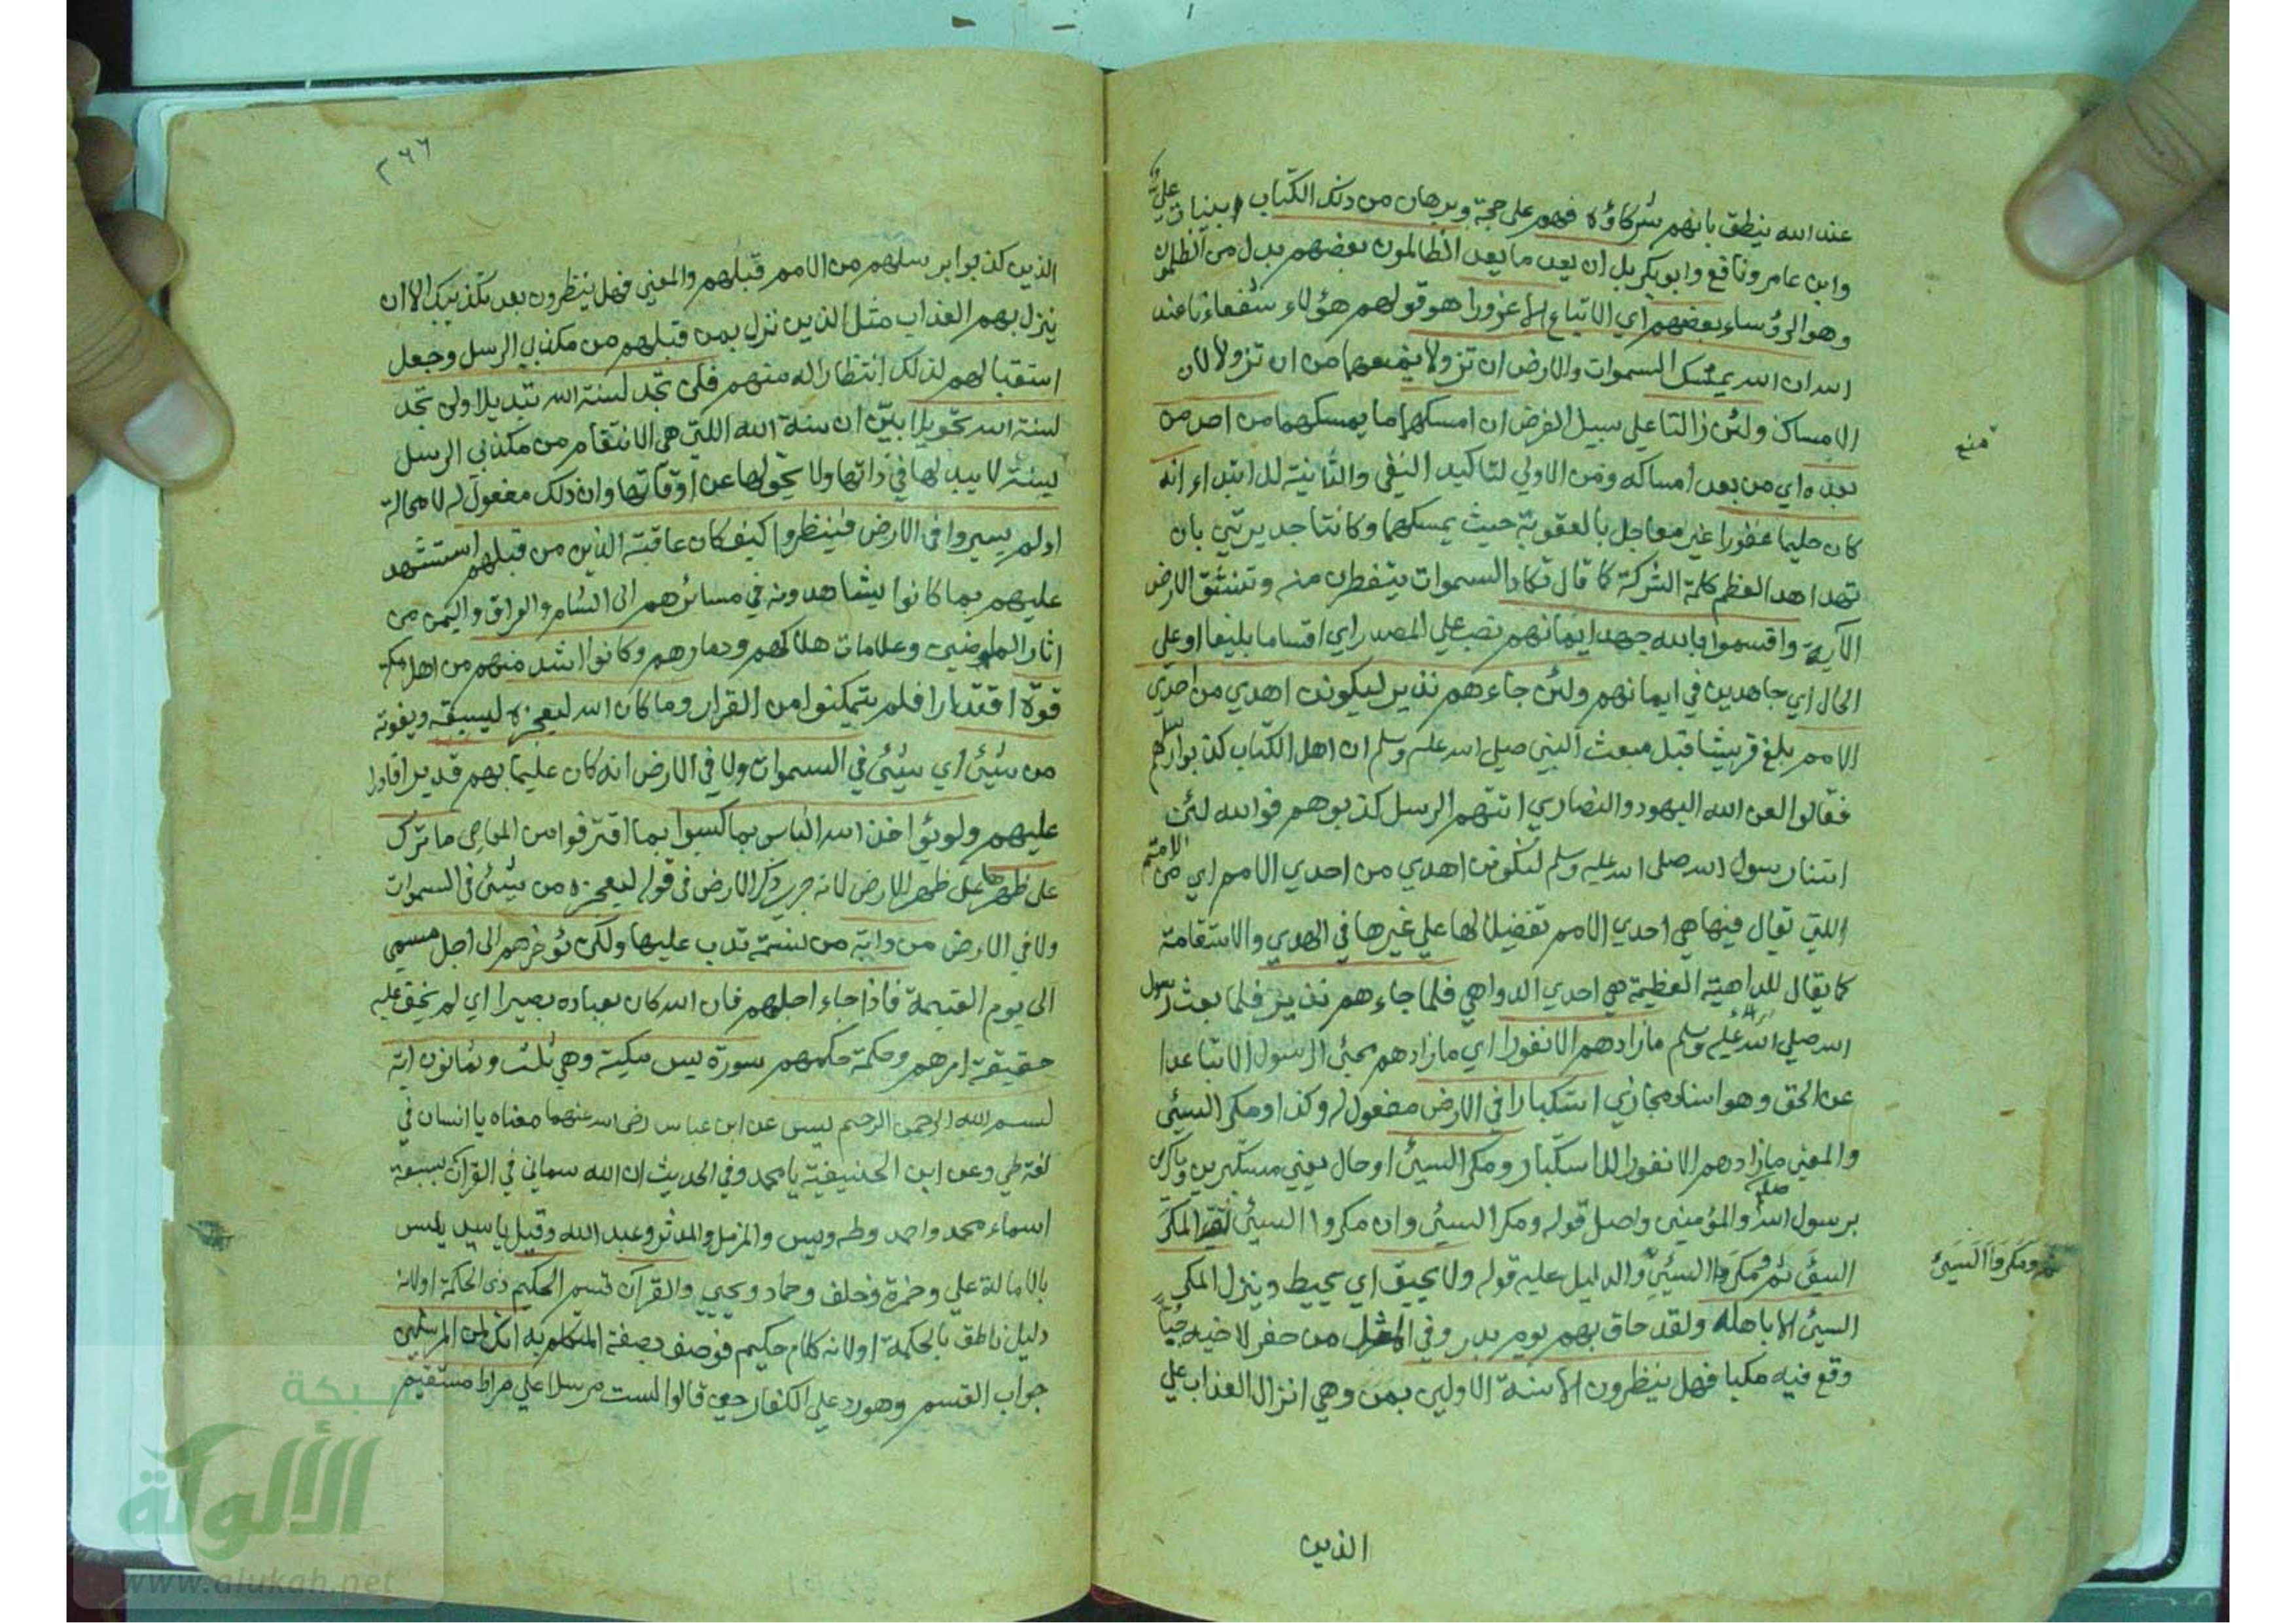 عند الله ينطق بانهم شركاؤه فهم على حجة وبرهان من ذلك الكتاب بينات علي
وابن عامر ونافع وابو بكر بل ان يعد ما يعد الظالمون بعضهم بدل من الظلمون
وهو الرؤساء بعضهم اي الاتباع الا غرورا هو قولهم هؤلاء شفعاءنا عند
الله ان الله يمسك السموات والارض ان تزولا يمنعهما من ان تزولا لان
الامساك ولئن زالتا علي سبيل الفرض ان امسكهما ما يمسكهما من احد من
منع
بعده اي من بعد امساكه ومن الاولي لتاكيد النفي والثانية للابتداء انه
كان حليما غفورا غير معاجل بالعقوبة حيث يمسكهما وكانتا جديرتين بان
تهدا هدا لعظم كلمة الشركة كما قال تكاد السموات يتفطرن منه وتنشق الارض
الآية واقسموا بالله جهد ايمانهم نصب علي المصدر اي اقساما بليغا او على
الحال اي جاهدين في ايمانهم ولئن جاءهم نذير ليكونن اهدي من احدي
الامم بلغ قريشا قبل مبعث النبي صلي الله عليه وسلم ان اهل الكتاب كذبوا رسلهم
فقالوا لعن الله اليهود والنصاري اتتهم الرسل كذبوهم فوالله لئن
اتنا رسول الله صلى الله عليه وسلم لنكونن اهدي من احدي الامم اي من الامة
اللتي تقال فيها هي احدي الامم تفضيلا لها علي غيرها في الهدي والاستقامة
كما يقال للداهية العظيمة هي احدي الدواهي فلما جاءهم نذير فلما بعث رسول
الله صلي الله عليه وسلم ما زادهم الا نفورا اي ما زادهم مجئ الرسول الا تباعدا
عن الحق وهو اسناد مجازي استكبارا في الارض مفعول له وكذا ومكر السيئ
والمعني ما زادهم الا نفورا للاستكبار ومكر السيئ او حال يعني مستكبرين وماكرين
برسول الله صلعم والمؤمنين واصل قوله ومكر السيئ وان مكروا السيئ اي المكر
السيئ ثم ومكر السيئ والدليل عليه قوله ولا يحيق اي يحيط وينزل المكر
ثم ومكروا السيئ
السيئ الا باهله ولقد حاق بهم يوم بدر وفي المثل من حفر لاخيه جبا
وقع فيه مكبا فهل ينظرون الا سنة الاولين بمن وهي انزال العذاب علي
الذين
٢٦٦
الذين كذبوا برسلهم من الامم قبلهم والمعني فهل ينظرون بعد تكذيبك الا ان
ينزل بهم العذاب مثل الذين نزل بمن قبلهم من مكذبي الرسل وجعل
استقبالهم لذلك انتظارا له منهم فلن تجد لسنة الله تبديلا ولن تجد
لسنة الله تحويلا بين ان سنة الله اللتي هي الانتقام من مكذبي الرسل
لسنة لا يبدلها في ذاتها ولا يحولها عن اوقاتها وان ذلك مفعول له لا محالة
اولم يسيروا في الارض فينظروا كيف كان عاقبة الذين من قبلهم استشهد
عليهم بما كانوا يشاهدونه في مسائرهم الى الشام والعراق واليمن من
اثار الماضين وعلامات هلاكهم ودمارهم وكانوا اشد منهم من اهل مكة
قوة اقتدارا فلم يتمكنوا من الفرار وما كان الله ليعجزه ليسبقه ويفوته
من شيئ اي شيئ في السموات ولا في الارض انه كان عليما بهم قديرا قادرا
عليهم ولو يؤاخذ الله الناس بما كسبوا بما اقترفوا من المعاصي ما ترك
على ظهرها على ظهر الارض لانه جري ذكر الارض في قوله ليعجزه من شئ في السموات
ولا في الارض من دابة من نسمة تدب عليها ولكن يؤخرهم الى اجل مسمى
الى يوم القيمة فاذا جاء اجلهم فان الله كان بعباده بصيرا اي لم يخف عليه
حقيقة امرهم وحكمة حكمهم سورة يس مكية وهي ثلث وثمانون اية
بسم الله الرحمن الرحيم يس عن ابن عباس رضى الله عنهما معناه يا انسان في
لغة طي وعن ابن الحنيفية يا محمد وفي الحديث ان الله سماني في القرآن بسبعة
اسماء محمد واحمد وطه ويس والمزمل والمدثر وعبد الله وقيل يا سيد يس
بالامالة علي وحمزة وخلف وحماد ويحيي والقرآن قسم الحكيم ذى الحكمة او لانه
دليل ناطق بالحكمة او لانه كلام حكيم فوصف بصفة المتكلم به انك لمن المرسلين
جواب القسم وهو رد علي الكفار حين قالوا لست مرسلا علي صراط مستقيم
شبكة
الألوكة
www.alukah.net